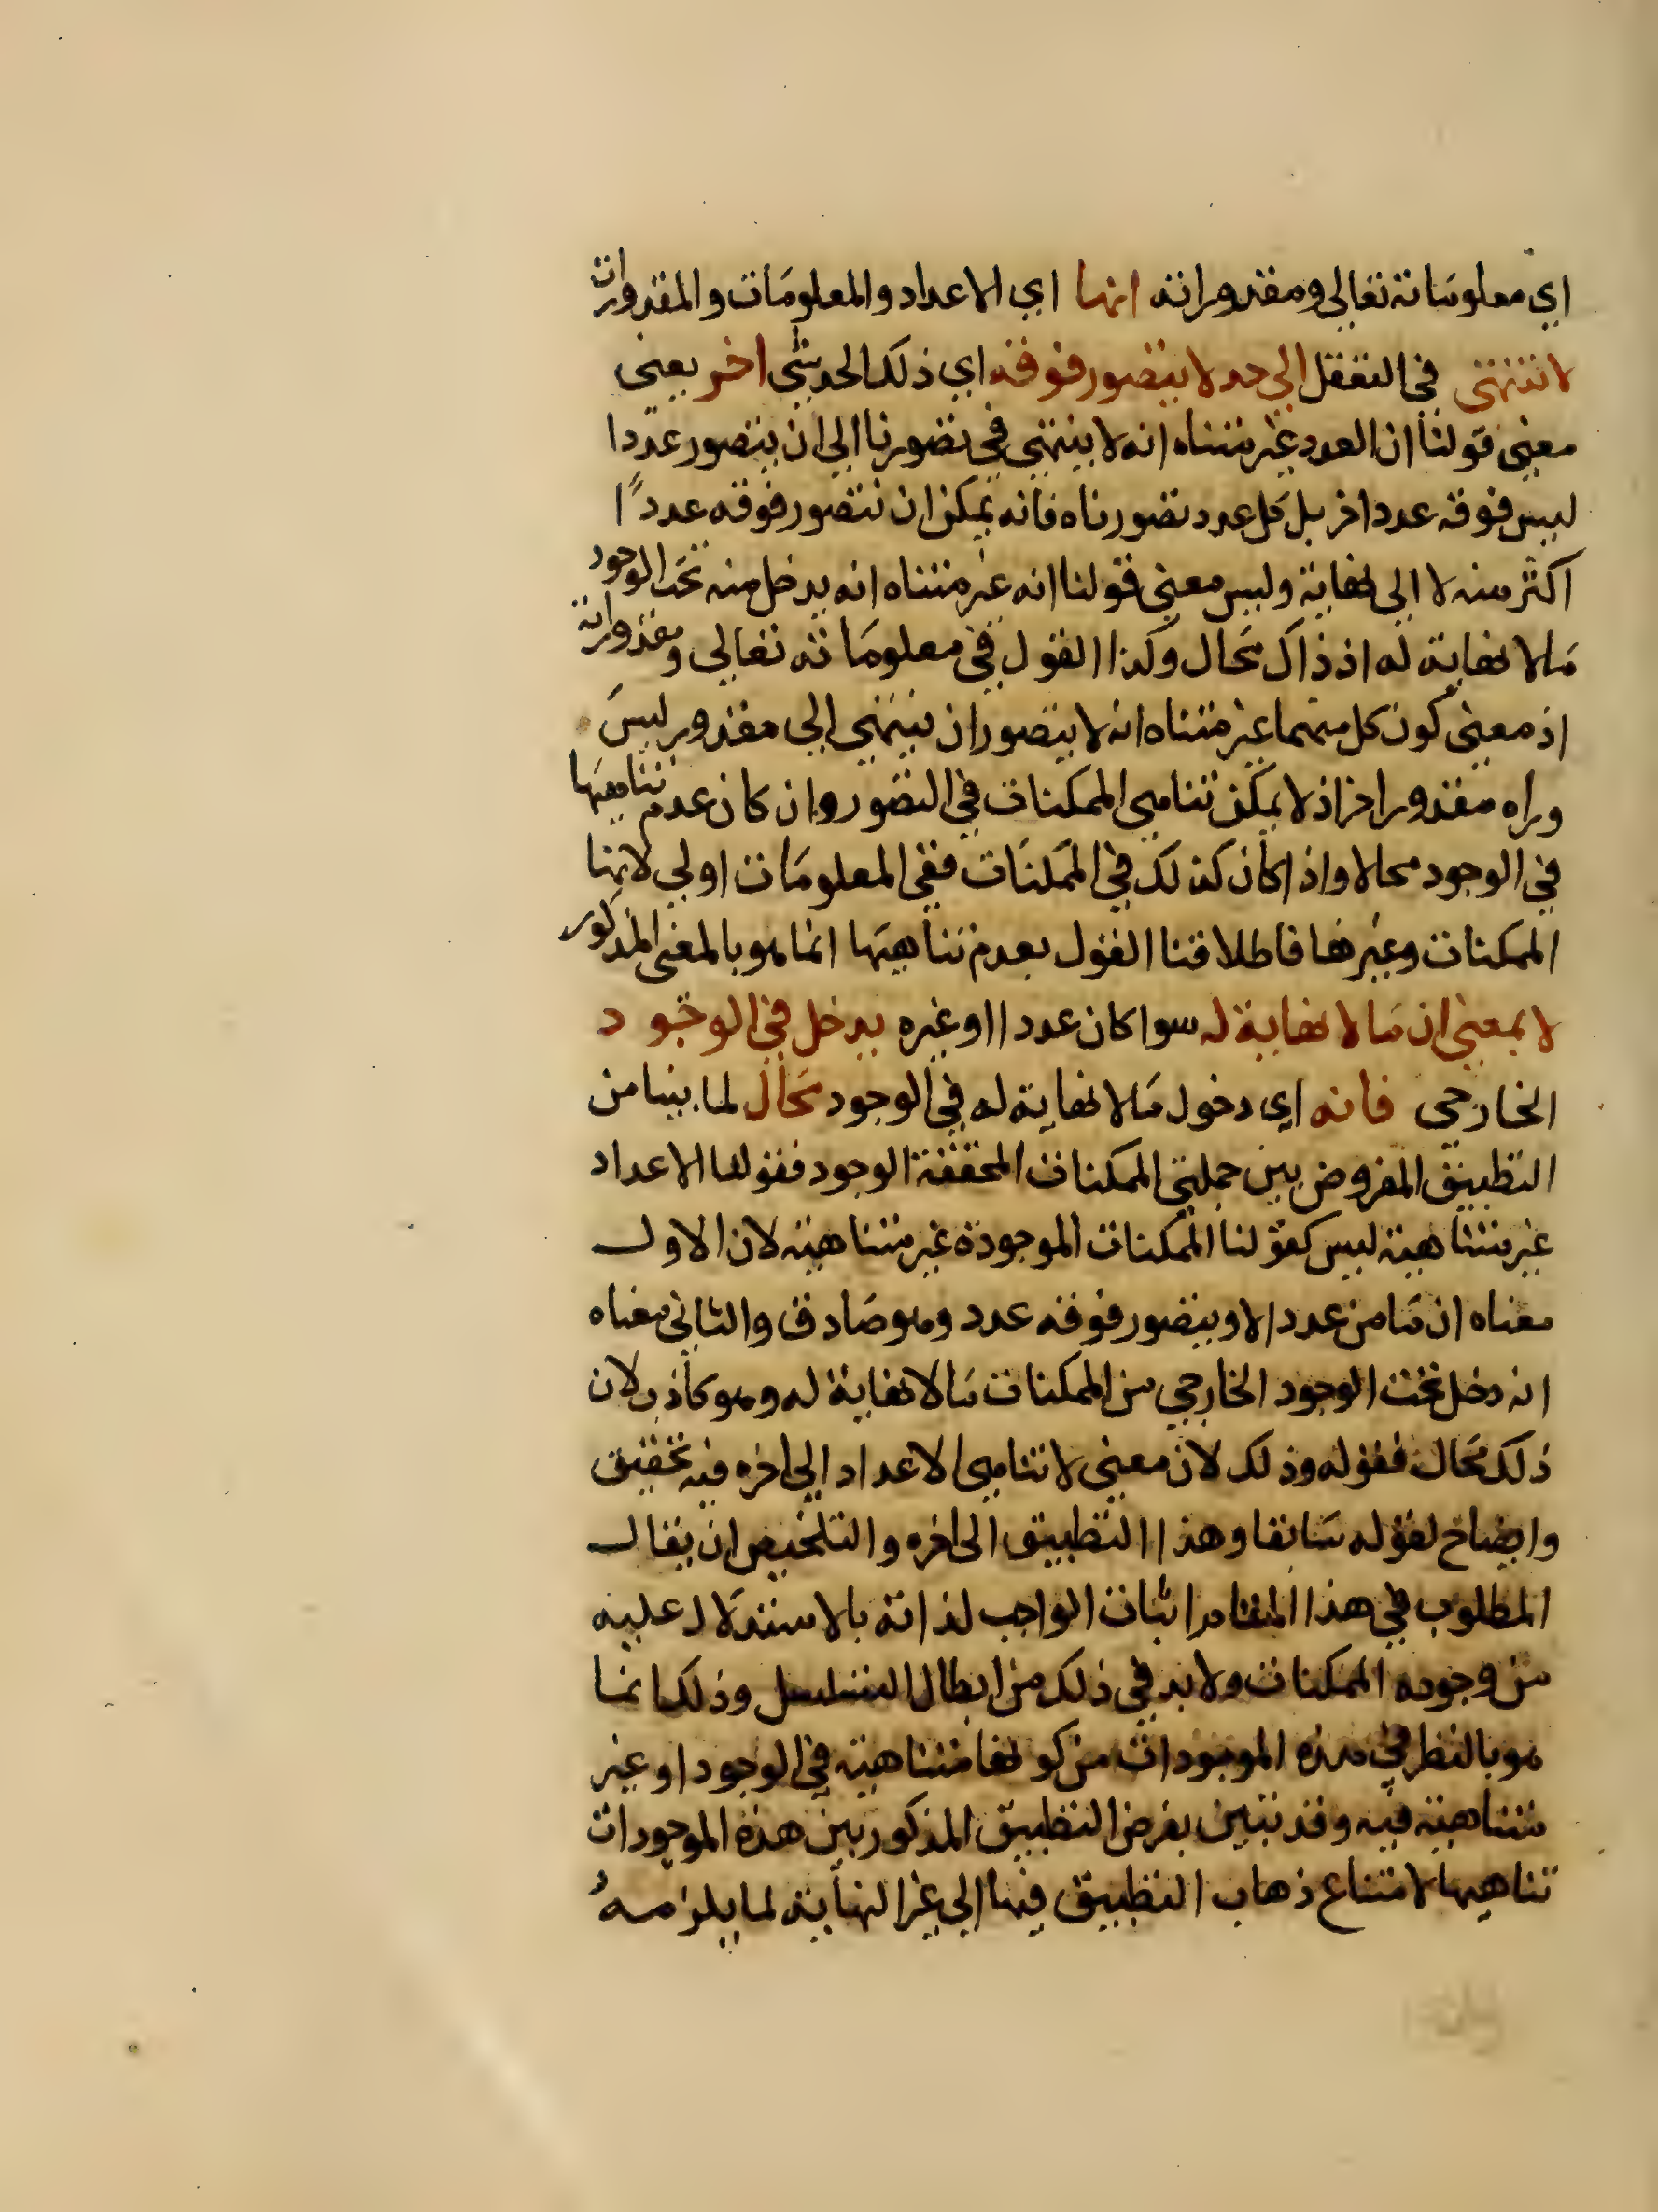 اي معلوماته تعالى ومقدوراته انها اي الاعداد والمعلومات والمقدورات
لا تنتهي في التعقل الى حد لا يتصور فوقه اي ذلك الحد شي اخر يعني
معنى قولنا ان العدد غير متناه انه لا ينتهي في تصورنا الى ان يتصور عددا
ليس فوقه عدد اخر بل كل عدد تصورناه فانه يمكن ان نتصور فوقه عددًا
اكثر منه لا الى نهاية وليس معنى قولنا انه غير متناه انه يدخل منه تحت الوجود
ما لا نهاية له اذ ذاك محال وكذا القول في معلوماته تعالى ومقدوراته
اذ معنى كون كل منهما غير متناه انه لا يتصور ان ينتهي الى مقدور ليس
وراه مقدور اخر اذ لا يمكن تناهي الممكنات في التصور وان كان عدم تناهيها
في الوجود محالا واذا كان كذلك في الممكنات ففي المعلومات اولى لانها
الممكنات وغيرها فاطلاقنا القول بعدم تناهيها انما هو بالمعنى المذكور
لا بمعنى ان ما لا نهاية له سوا كان عددا او غيره يدخل في الوجود
الخارجي فانه اي دخول ما لا نهاية له في الوجود محال لما بينا من
التطبيق المفروض بين جملتي الممكنات المحققة الوجود فقولنا الاعداد
غير متناهية ليس كقولنا الممكنات الموجودة غير متناهية لان الاول
معناه ان ما من عدد الا ويتصور فوقه عدد وهو صادق والثاني معناه
انه دخل تحت الوجود الخارجي من الممكنات ما لا نهاية له وهو كاذب لان
ذلك محال فقوله وذلك لان معنى لا تناهي الاعداد الى اخره فيه تحقيق
وايضاح لقوله سابقا وهذا التطبيق الى اخره والتلخيص ان يقال
المطلوب في هذا المقام اثبات الواجب لذاته بالاستدلال عليه
من وجوده الممكنات ولا بد في ذلك من ابطال التسلسل وذلك انما
هو بالنظر في هذه الموجودات من كونها متناهية في الوجود او غير
متناهية فيه وقد تبين بفرض التطبيق المذكور بين هذه الموجودات
تناهيها لامتناع ذهاب التطبيق فيها الى غير النهاية لما يلزمهُ